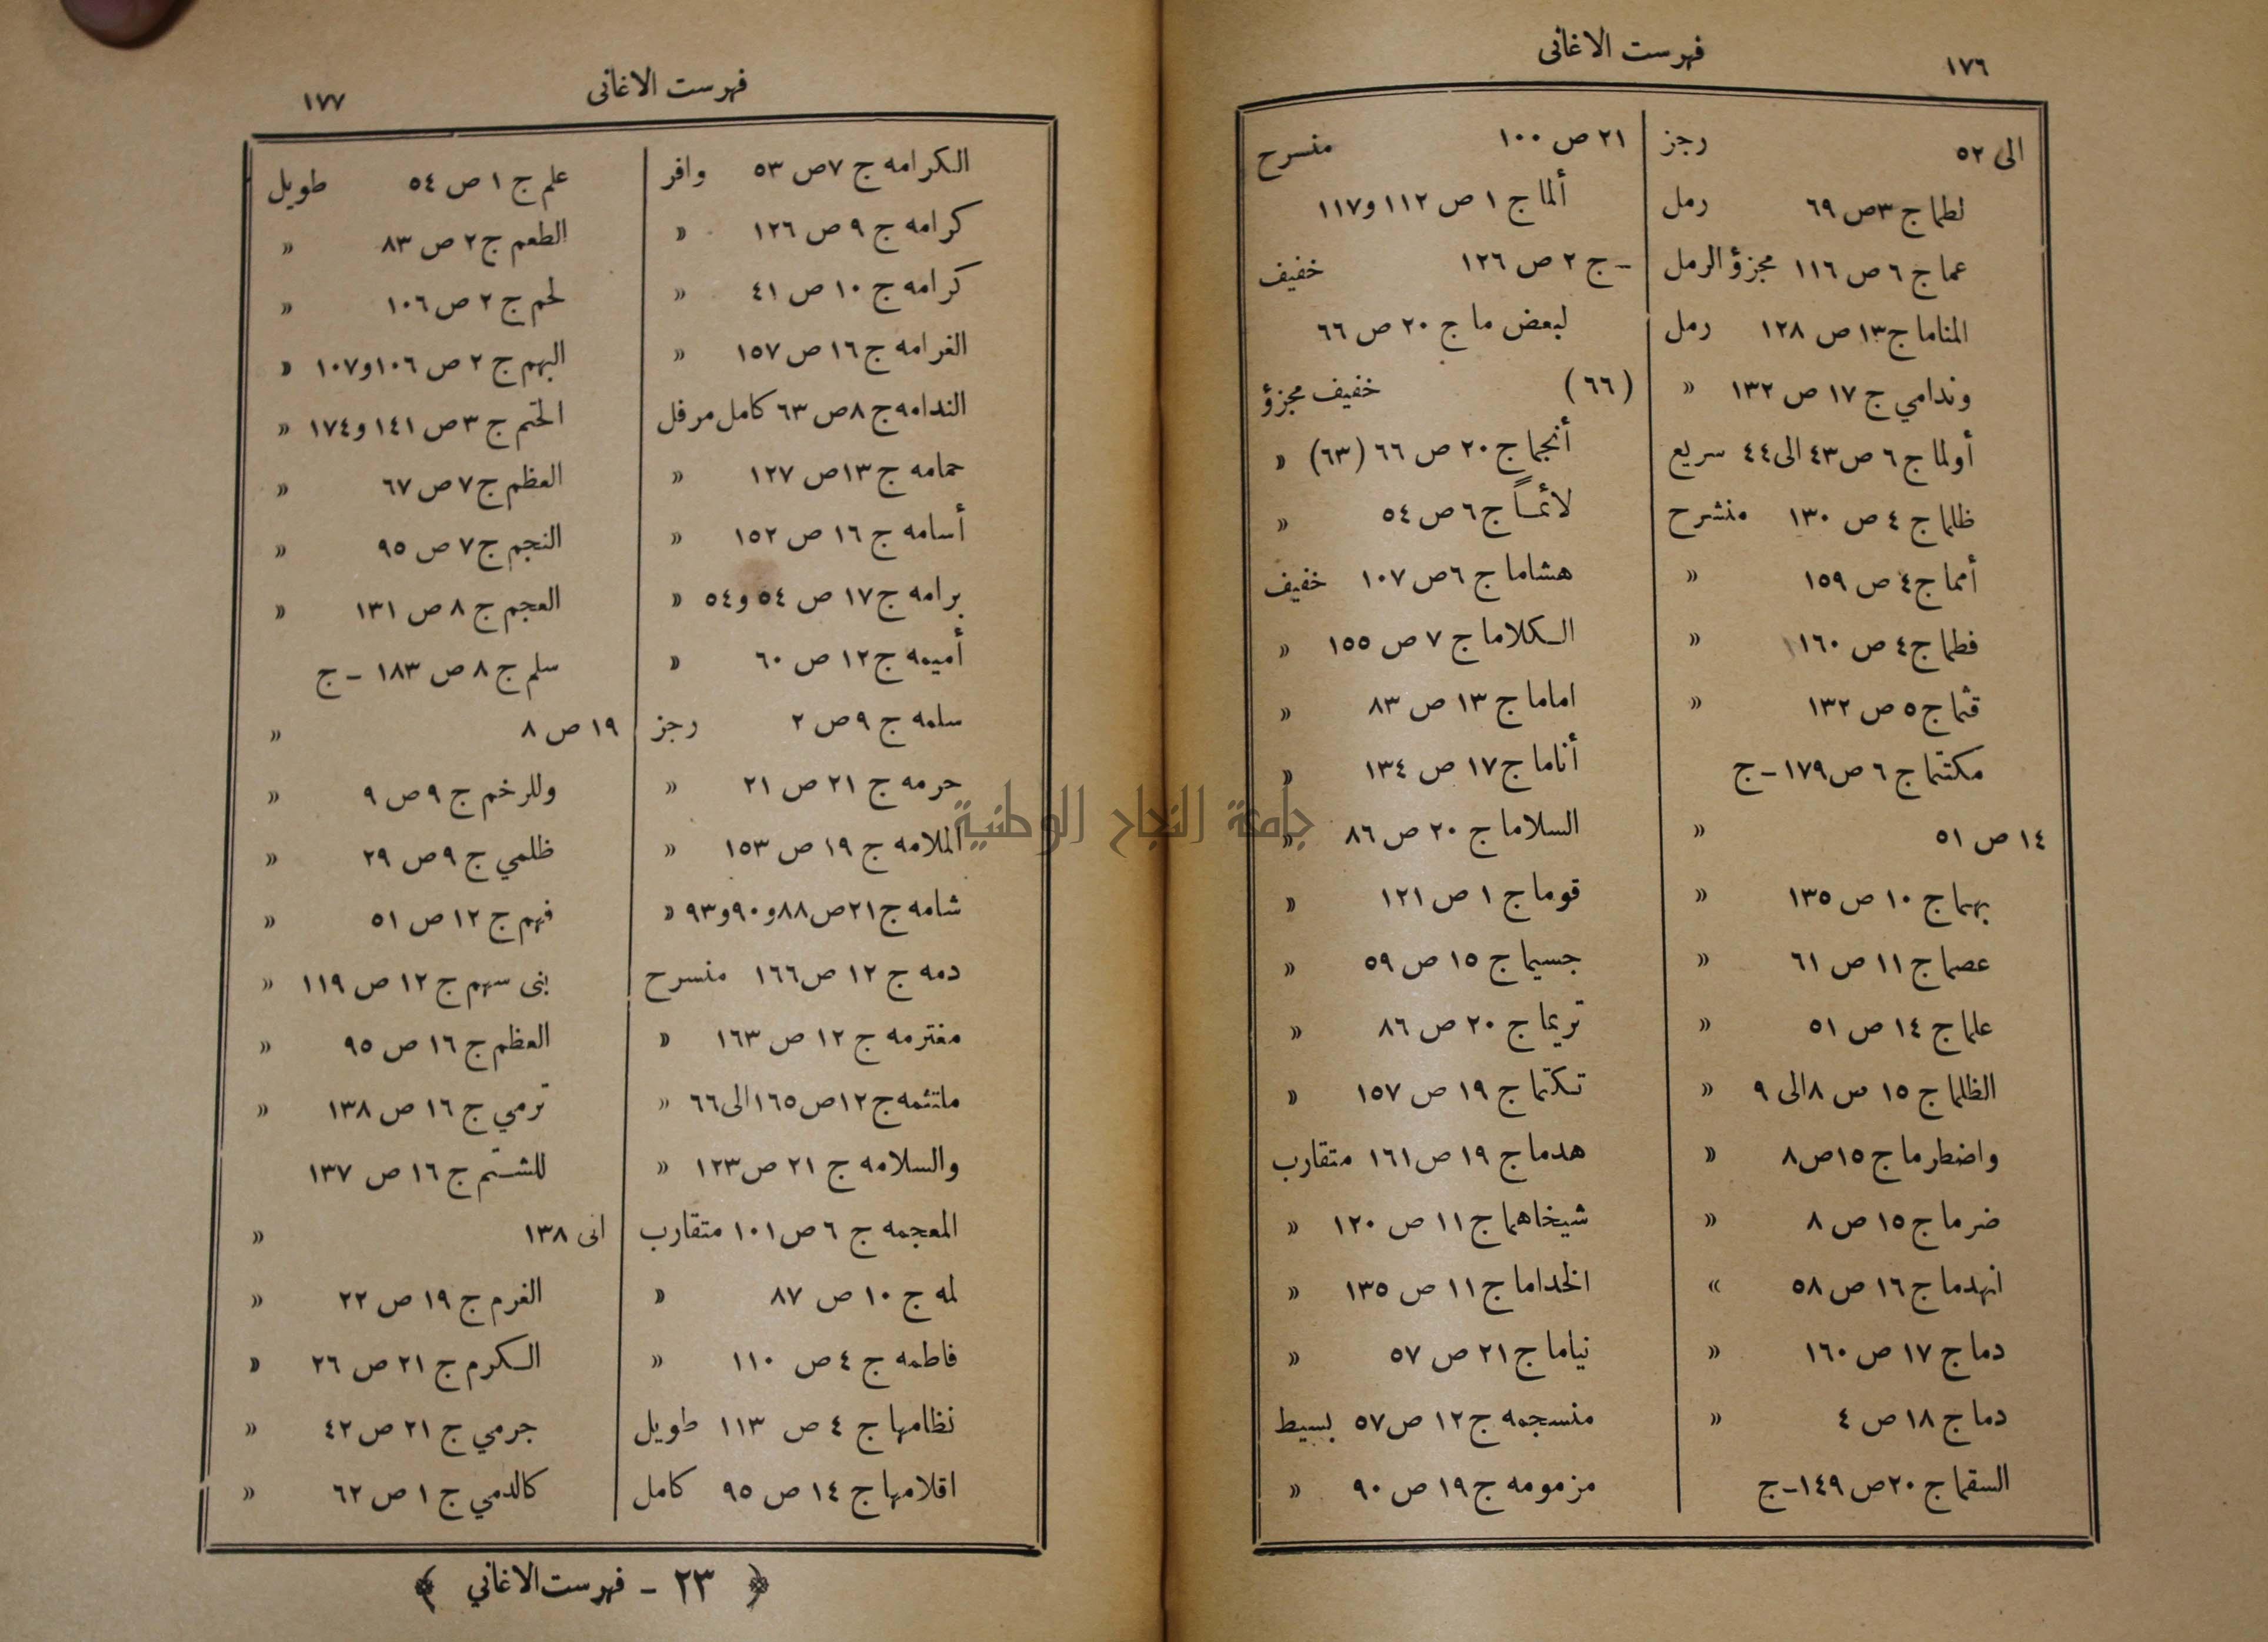 ١٧٦
فهرست الاغانى
الى ٥٢ رجز
لطما ج ٣ ص ٦٩ رمل
عما ج ٦ ص ١١٦ مجزؤ الرمل
المناما ج ١٣ ص ١٢٨ رمل
وندامي ج ١٧ ص ١٣٢ «
أولما ج ٦ ص ٤٣ الى ٤٤ سريع
ظلما ج ٤ ص ١٣٠ منشرح
أمما ج ٤ ص ١٥٩ «
فطما ج ٤ ص ١٦٠ «
قثما ج ٥ ص ١٣٢ «
مكتتما ج ٦ ص ١٧٩ - ج
١٤ ص ٥١ «
بهما ج ١٠ ص ١٣٥ «
عصما ج ١١ ص ٦١ «
علما ج ١٤ ص ٥١ «
الظلما ج ١٥ ص ٨ الى ٩ «
واضطرما ج ١٥ ص ٨ «
ضرما ج ١٥ ص ٨ «
انهدما ج ١٦ ص ٥٨ »
دما ج ١٧ ص ١٦٠ «
دما ج ١٨ ص ٤ «
السقما ج ٢٠ ص ١٤٩ - ج
٢١ ص ١٠٠ منسرح
ألما ج ١ ص ١١٢ و ١١٧
- ج ٢ ص ١٢٦ خفيف
لبعض ما ج ٢٠ ص ٦٦
(٦٦) خفيف مجزؤ
أنجما ج ٢٠ ص ٦٦ (٦٣) «
لائماً ج ٦ ص ٥٤ «
هشاما ج ٦ ص ١٠٧ خفيف
الكلاما ج ٧ ص ١٥٥ «
اماما ج ١٣ ص ٨٣ «
أناما ج ١٧ ص ١٣٤ «
السلاما ج ٢٠ ص ٨٦ «
قوما ج ١ ص ١٢١ «
جسيما ج ١٥ ص ٥٩ «
تريما ج ٢٠ ص ٨٦ «
تكتما ج ١٩ ص ١٥٧ «
هدما ج ١٩ ص ١٦١ متقارب
شيخاهما ج ١١ ص ١٢٠ «
الخداما ج ١١ ص ١٣٥ «
نياما ج ٢١ ص ٥٧ «
منسجمه ج ١٢ ص ٥٧ بسيط
مزمومه ج ١٩ ص ٩٠ «
جامعة النجاح الوطنية
فهرست الاغانى
١٧٧
الكرامه ج ٧ ص ٥٣ وافر
كرامه ج ٩ ص ١٢٦ «
كرامه ج ١٠ ص ٤١ «
الغرامه ج ١٦ ص ١٥٧ «
الندامه ج ٨ ص ٦٣ كامل مرفل
حمامه ج ١٣ ص ١٢٧ «
أسامه ج ١٦ ص ١٥٢ «
برامه ج ١٧ ص ٥٤ و ٥٤ «
أميمه ج ١٢ ص ٦٠ «
سلمه ج ٩ ص ٢ رجز
حرمه ج ٢١ ص ٢١ «
الملامه ج ١٩ ص ١٥٣ «
شامه ج ٢١ ص ٨٨ و ٩٠ و ٩٣ «
دمه ج ١٢ ص ١٦٦ منسرح
مغترمه ج ١٢ ص ١٦٣ «
ملتئمه ج ١٢ ص ١٦٥ الى ٦٦ «
والسلامه ج ٢١ ص ١٢٣ «
المعجمه ج ٦ ص ١٠١ متقارب
لمه ج ١٠ ص ٨٧ «
فاطمه ج ٤ ص ١١٠ «
نظامها ج ٤ ص ١١٣ طويل
اقلامها ج ١٤ ص ٩٥ كامل
علم ج ١ ص ٥٤ طويل
الطعم ج ٢ ص ٨٣ «
لحم ج ٢ ص ١٠٦ «
البهم ج ٢ ص ١٠٦ و ١٠٧ «
الختم ج ٣ ص ١٤١ و ١٧٤ «
العظم ج ٧ ص ٦٧ «
النجم ج ٧ ص ٩٥ «
العجم ج ٨ ص ١٣١ «
سلم ج ٨ ص ١٨٣ - ج
١٩ ص ٨ «
وللرخم ج ٩ ص ٩ «
ظلمي ج ٩ ص ٢٩ «
فهم ج ١٢ ص ٥١ «
بنى سهم ج ١٢ ص ١١٩ «
العظم ج ١٦ ص ٩٥ «
ترمي ج ١٦ ص ١٣٨ «
للشتم ج ١٦ ص ١٣٧
الى ١٣٨ «
الغرم ج ١٩ ص ٢٢ «
الكرم ج ٢١ ص ٢٦ «
جرمي ج ٢١ ص ٤٢ «
كالدمي ج ١ ص ٦٢ «
﴿ ٢٣ - فهرست الاغاني ﴾